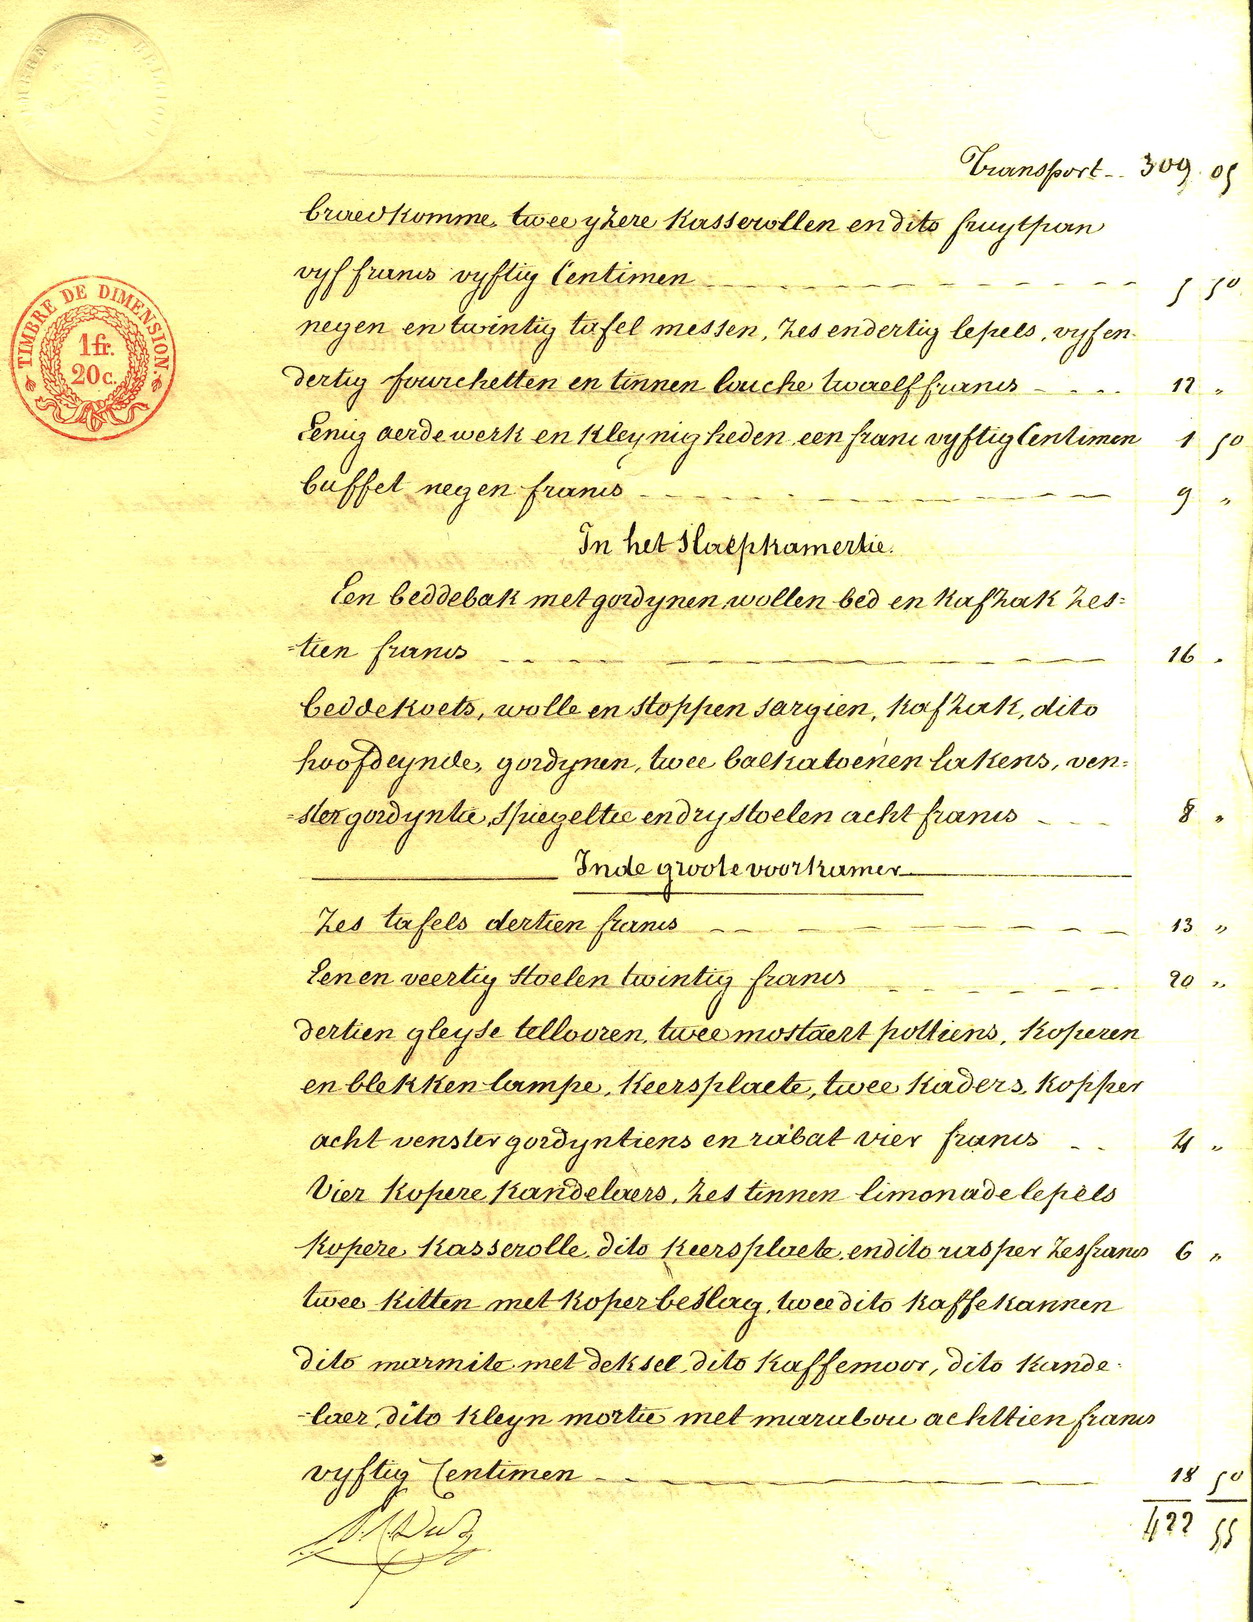 Transport 309 05
TIMBRE DE DIMENSION
1fr.
20c.
braedkomme, twee yzere kasserollen en dito fruytpan
vyf francs vyftig Centimen 5 50
negen en twintig tafel messen, zes en dertig lepels, vyf en
dertig fourchetten en tinnen louche twaelf francs 12 "
Eenig aerdewerk en kleynigheden een franc vyftig Centimen 1 50
buffet negen francs 9 "
In het slaepkamertie.
Een beddebak met gordynen wollen bed en kafzak zes=
=tien francs 16 "
beddekoets, wolle en stoppen sargien, kafzak, dito
hoofdeynde, gordynen, twee balkatoenen lakens, ven=
=ster gordyntie, spiegeltie en dry stoelen acht francs 8 "
In de groote voorkamer
Zes tafels dertien francs 13 "
Eenen veertig stoelen twintig francs 20 "
dertien gleyse tellooren, twee mostaert pottiens, koperen
en blekken lampe, keersplaete, twee kaders, kopper
acht venster gordyntiens en rabat vier francs 4 "
Vier kopere kandelaers, zes tinnen limonade lepels
kopere kasserolle, dito keersplaete, en dito rasper zes francs 6 "
twee kitten met koper beslag, twee dito kaffekannen
dito marmite met deksel, dito kaffemoor, dito kande-
-laer, dito kleyn mortie met marabou achttien francs
vyftig Centimen 18 50
422 55